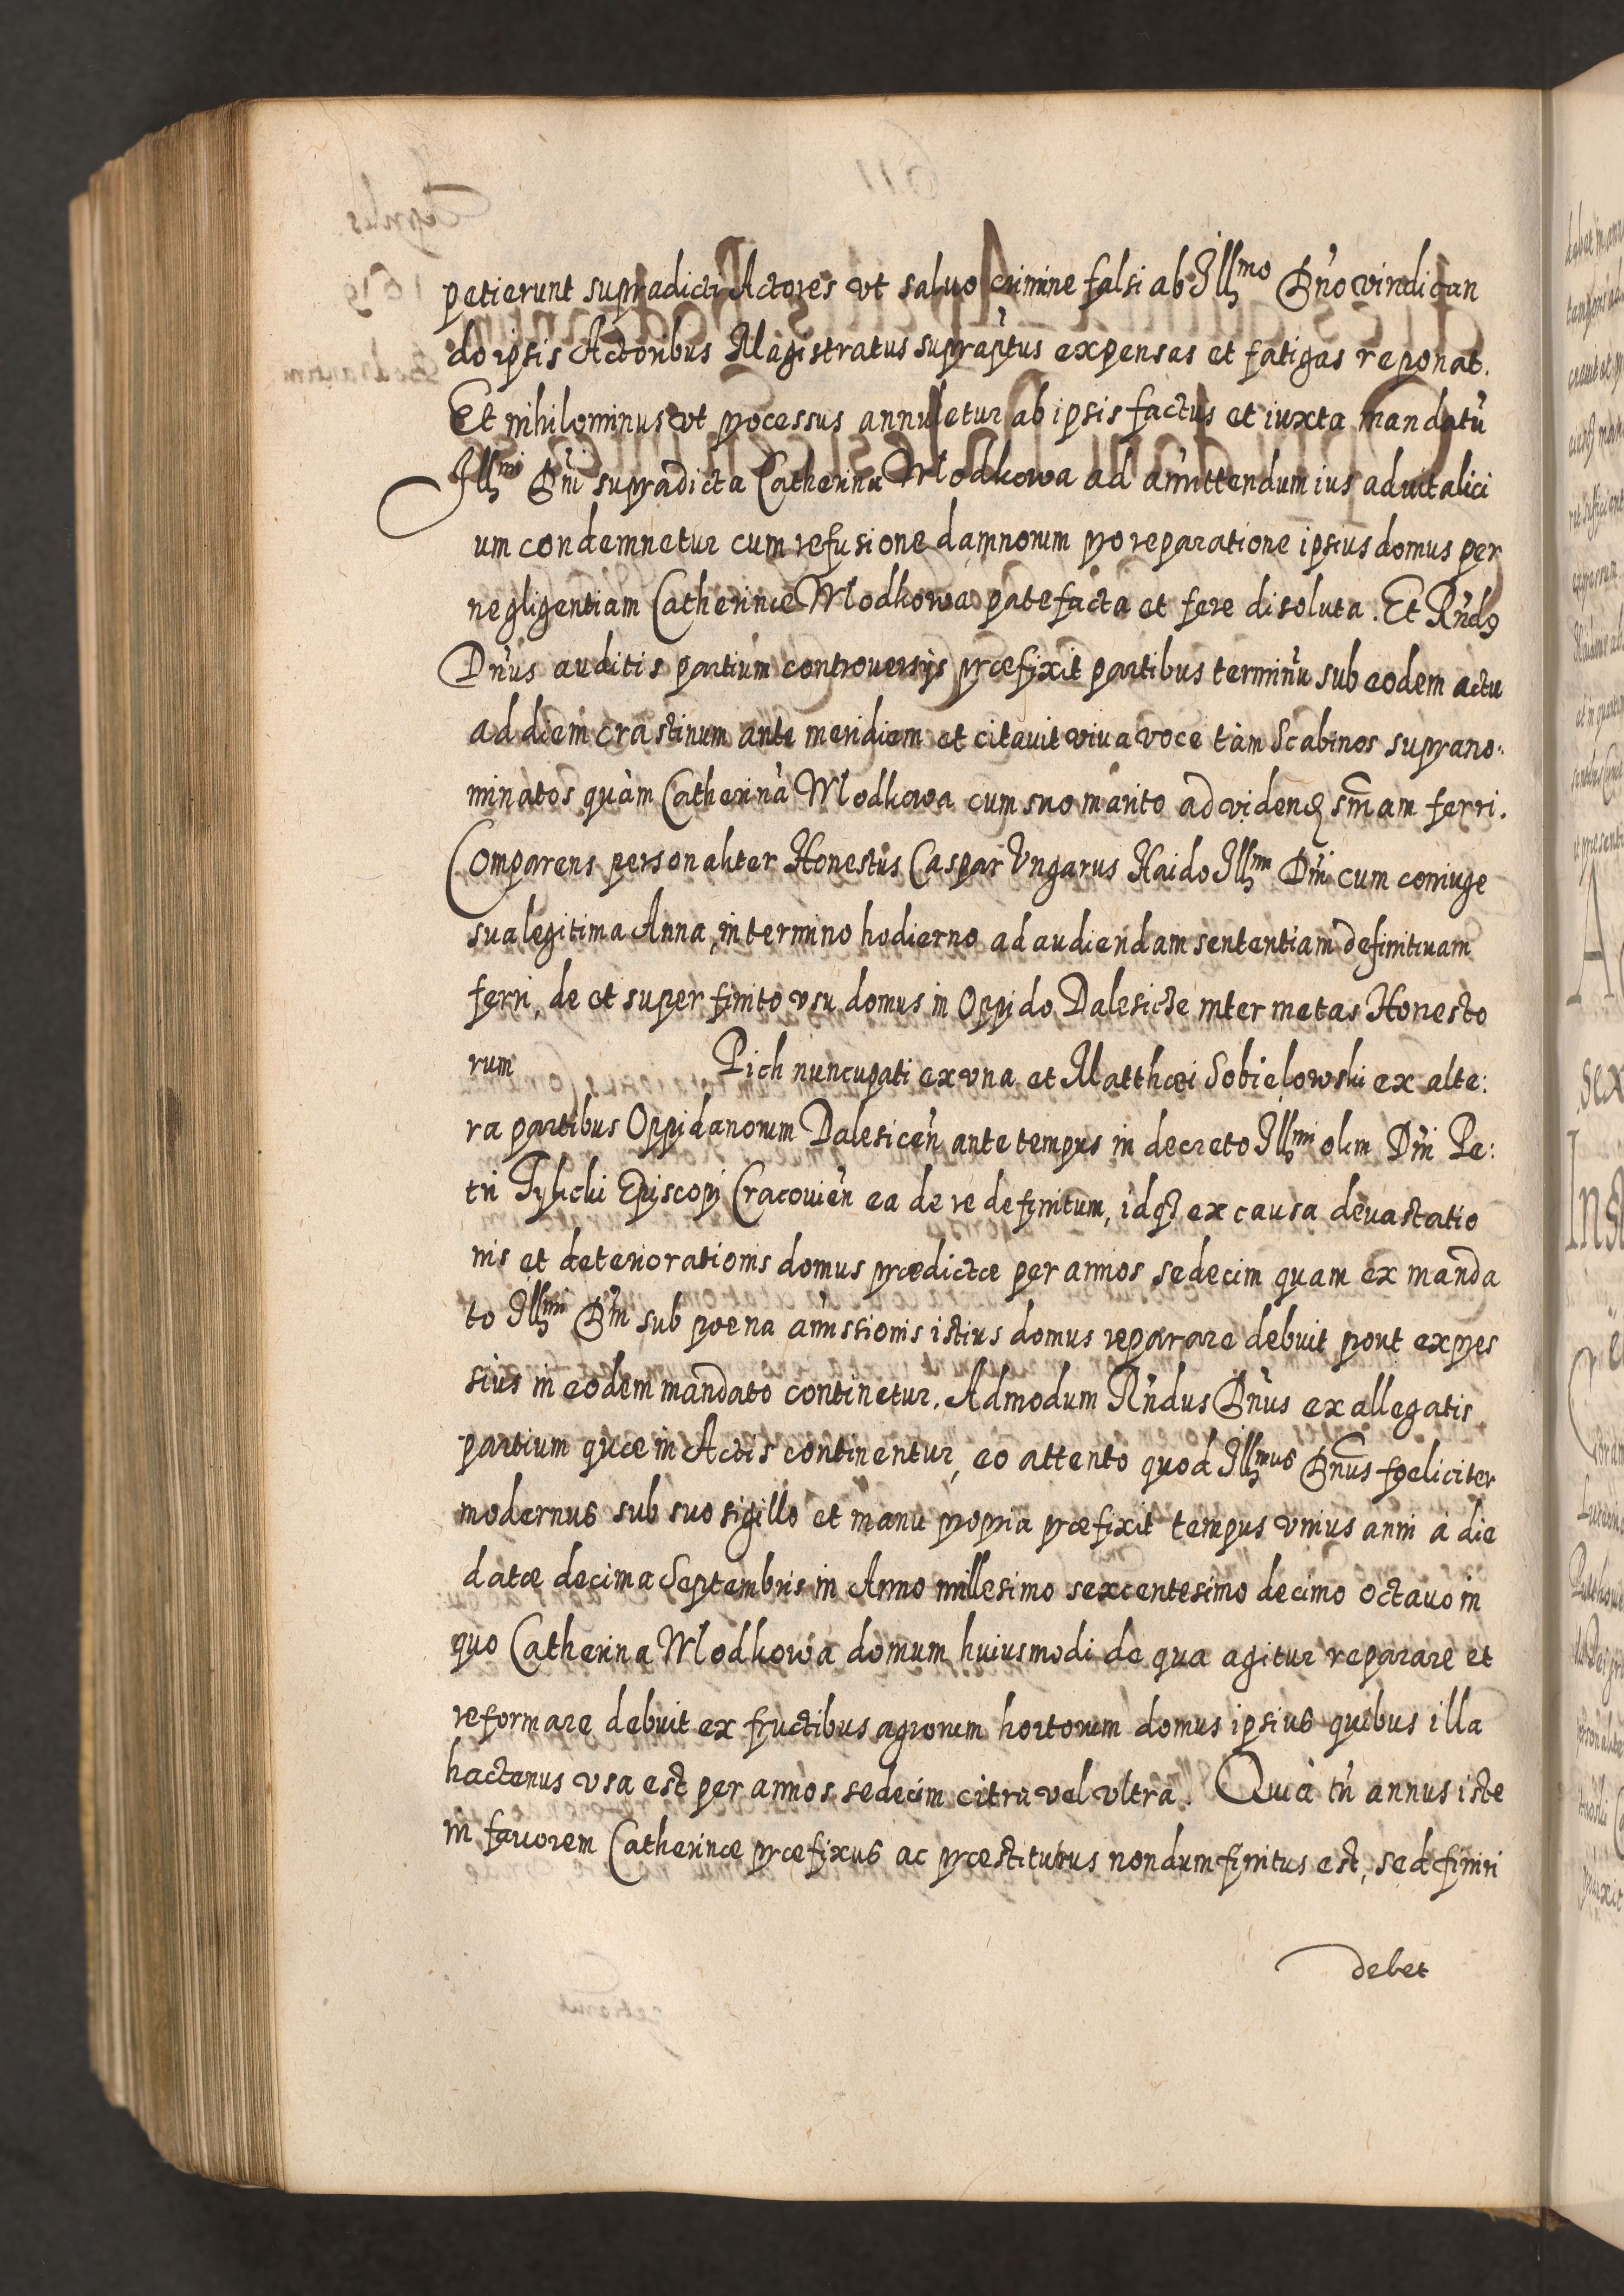 petierunt supradicti Actores vt saluo crimine falsi ab Illmo Dno vindican
do ipsis Actoribus Magistratus supraptus expensas et fatigas reponat.
Et nihilominus vt processus annuletur ab ipsis factus et iuxta mandatū
Illmi Dni supradicta Catherina Wlodkowa ad amittendum ius aduitalici
um condemnetur cum refusione damnorum pro reparatione ipsius domus per
negligentiam Catherinæ Wlodkowa patefacta et fere disoluta. Et Rnds
Dnus auditis partium controuersijs præfixit partibus terminū sub eodem actu
ad diem crastinum ante meridiem et citauit viua voce tàm Scabinos suprano-
minatos quàm Catherinā Wlodkowa cum suo marito ad videnḍ snīam ferri.
Comparens personaliter Honestus Caspar Vngarus Haido Illmi Dni cum coniuge
sua legitima Anna, in termino hodierno ad audiendam sententiam definitiuam
ferri, de et super finito vsu domus in Oppido Dalesicze inter metas Honesto
rum Pich nuncupati ex vna et Matthæi Sobielowski ex alte:
ra partibus Oppidanorum Dalesicen ante tempus in decreto Illmi olim Dni Pe:
tri Tylicki Episcopi Cracouien ea de re definitum, idq3 ex causa deuastatio
nis et deteriorationis domus prædictæ per annos sedecim quam ex manda
to Illmi Dni sub poena amissionis istius domus reparare debuit prout expres
sius in eodem mandato continetur. Admodum Rndus Dnus ex allegatis
partium quæ in Actis continentur, eo attento quod Illmus Dnus foeliciter
modernus sub suo sigillo et manu propria præfixit tempus vnius anni a die
datæ decima Septembris in Anno millesimo sexcentesimo decimo octauo in
quo Catherina Wlodkowa domum huiusmodi de qua agitur reparare et
reformare debuit ex fructibus agrorum hortorum domus ipsius quibus illa
hactenus vsa est per annos sedecim citra vel vltra. Quia tn annus iste
in fauorem Catherinæ præfixus ac præstitutus nondum finitus est, sed finiri
debet